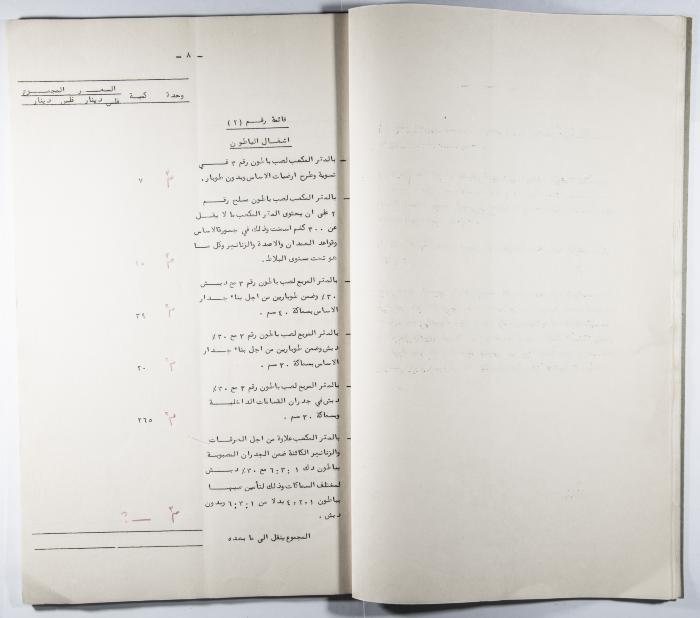 - ٨ -
وحدة كمية السعر المجموع
فلس دينار فلس دينار
قائمة رقم (٢)
اشغال الباطون
- بالمتر المكعب لصب باطون رقم ٣ في
تسوية وطرح ارضيات الاساس وبدون طوبار .
م٣ ٧
- بالمتر المكعب لصب باطون مسلح رقم
٢ على ان يحتوى المتر المكعب ما لا يقل
عن ٣٠٠ كغم اسمنت وذلك في جسورة الاساس
وقواعد العمدان والاعمدة والزنانير وكل ما
هو تحت مستوى البلاط .
م٣ ١٥
- بالمتر المربع لصب باطون رقم ٣ مع دبش
٣٠٪ وضمن طوبارين من اجل بناء جدار
الاساس بسماكة ٤٠ سم .
م٢ ٣٩
- بالمتر المربع لصب باطون رقم ٣ مع ٣٠٪
دبش وضمن طوبارين من اجل بناء جدار
الاساس بسماكة ٣٠ سم .
م٢ ٢٠
- بالمتر المربع لصب باطون رقم ٣ مع ٣٠٪
دبش في جدران القطاعات الداخلية
وبسماكة ٣٠ سم .
م٢ ٢٦٥
- بالمتر المكعب علاوة من اجل
والزنانير الكائنة ضمن الجدران المصبوبة
بباطون دك ١ : ٣ : ٦ مع ٣٠٪ دبش
لمختلف السماكات وذلك لتأمين صبها
بباطون ١ : ٢ : ٤ بدلا من ١ : ٣ : ٦ وبدون
دبش .
م٣ — ؟
المجموع ينقل الى ما بعده